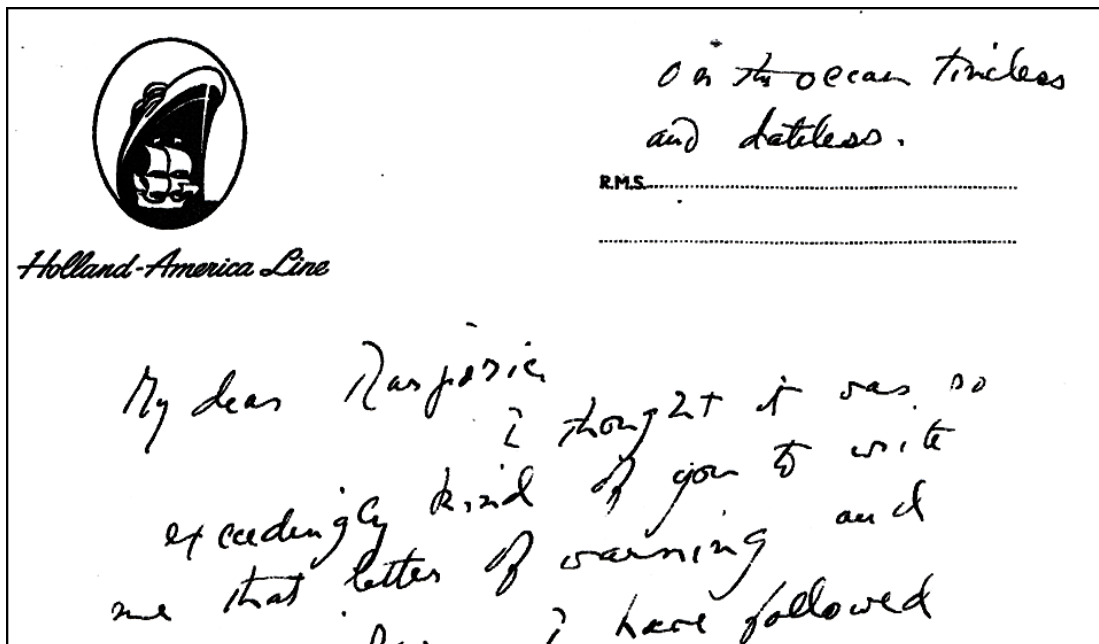 on the ocean timeless
and dateless.
R.M.S.
Holland-America Line
My dear Marjorie
I thought it was so
exceedingly kind of you to write
me that letter of warning and
I have followed